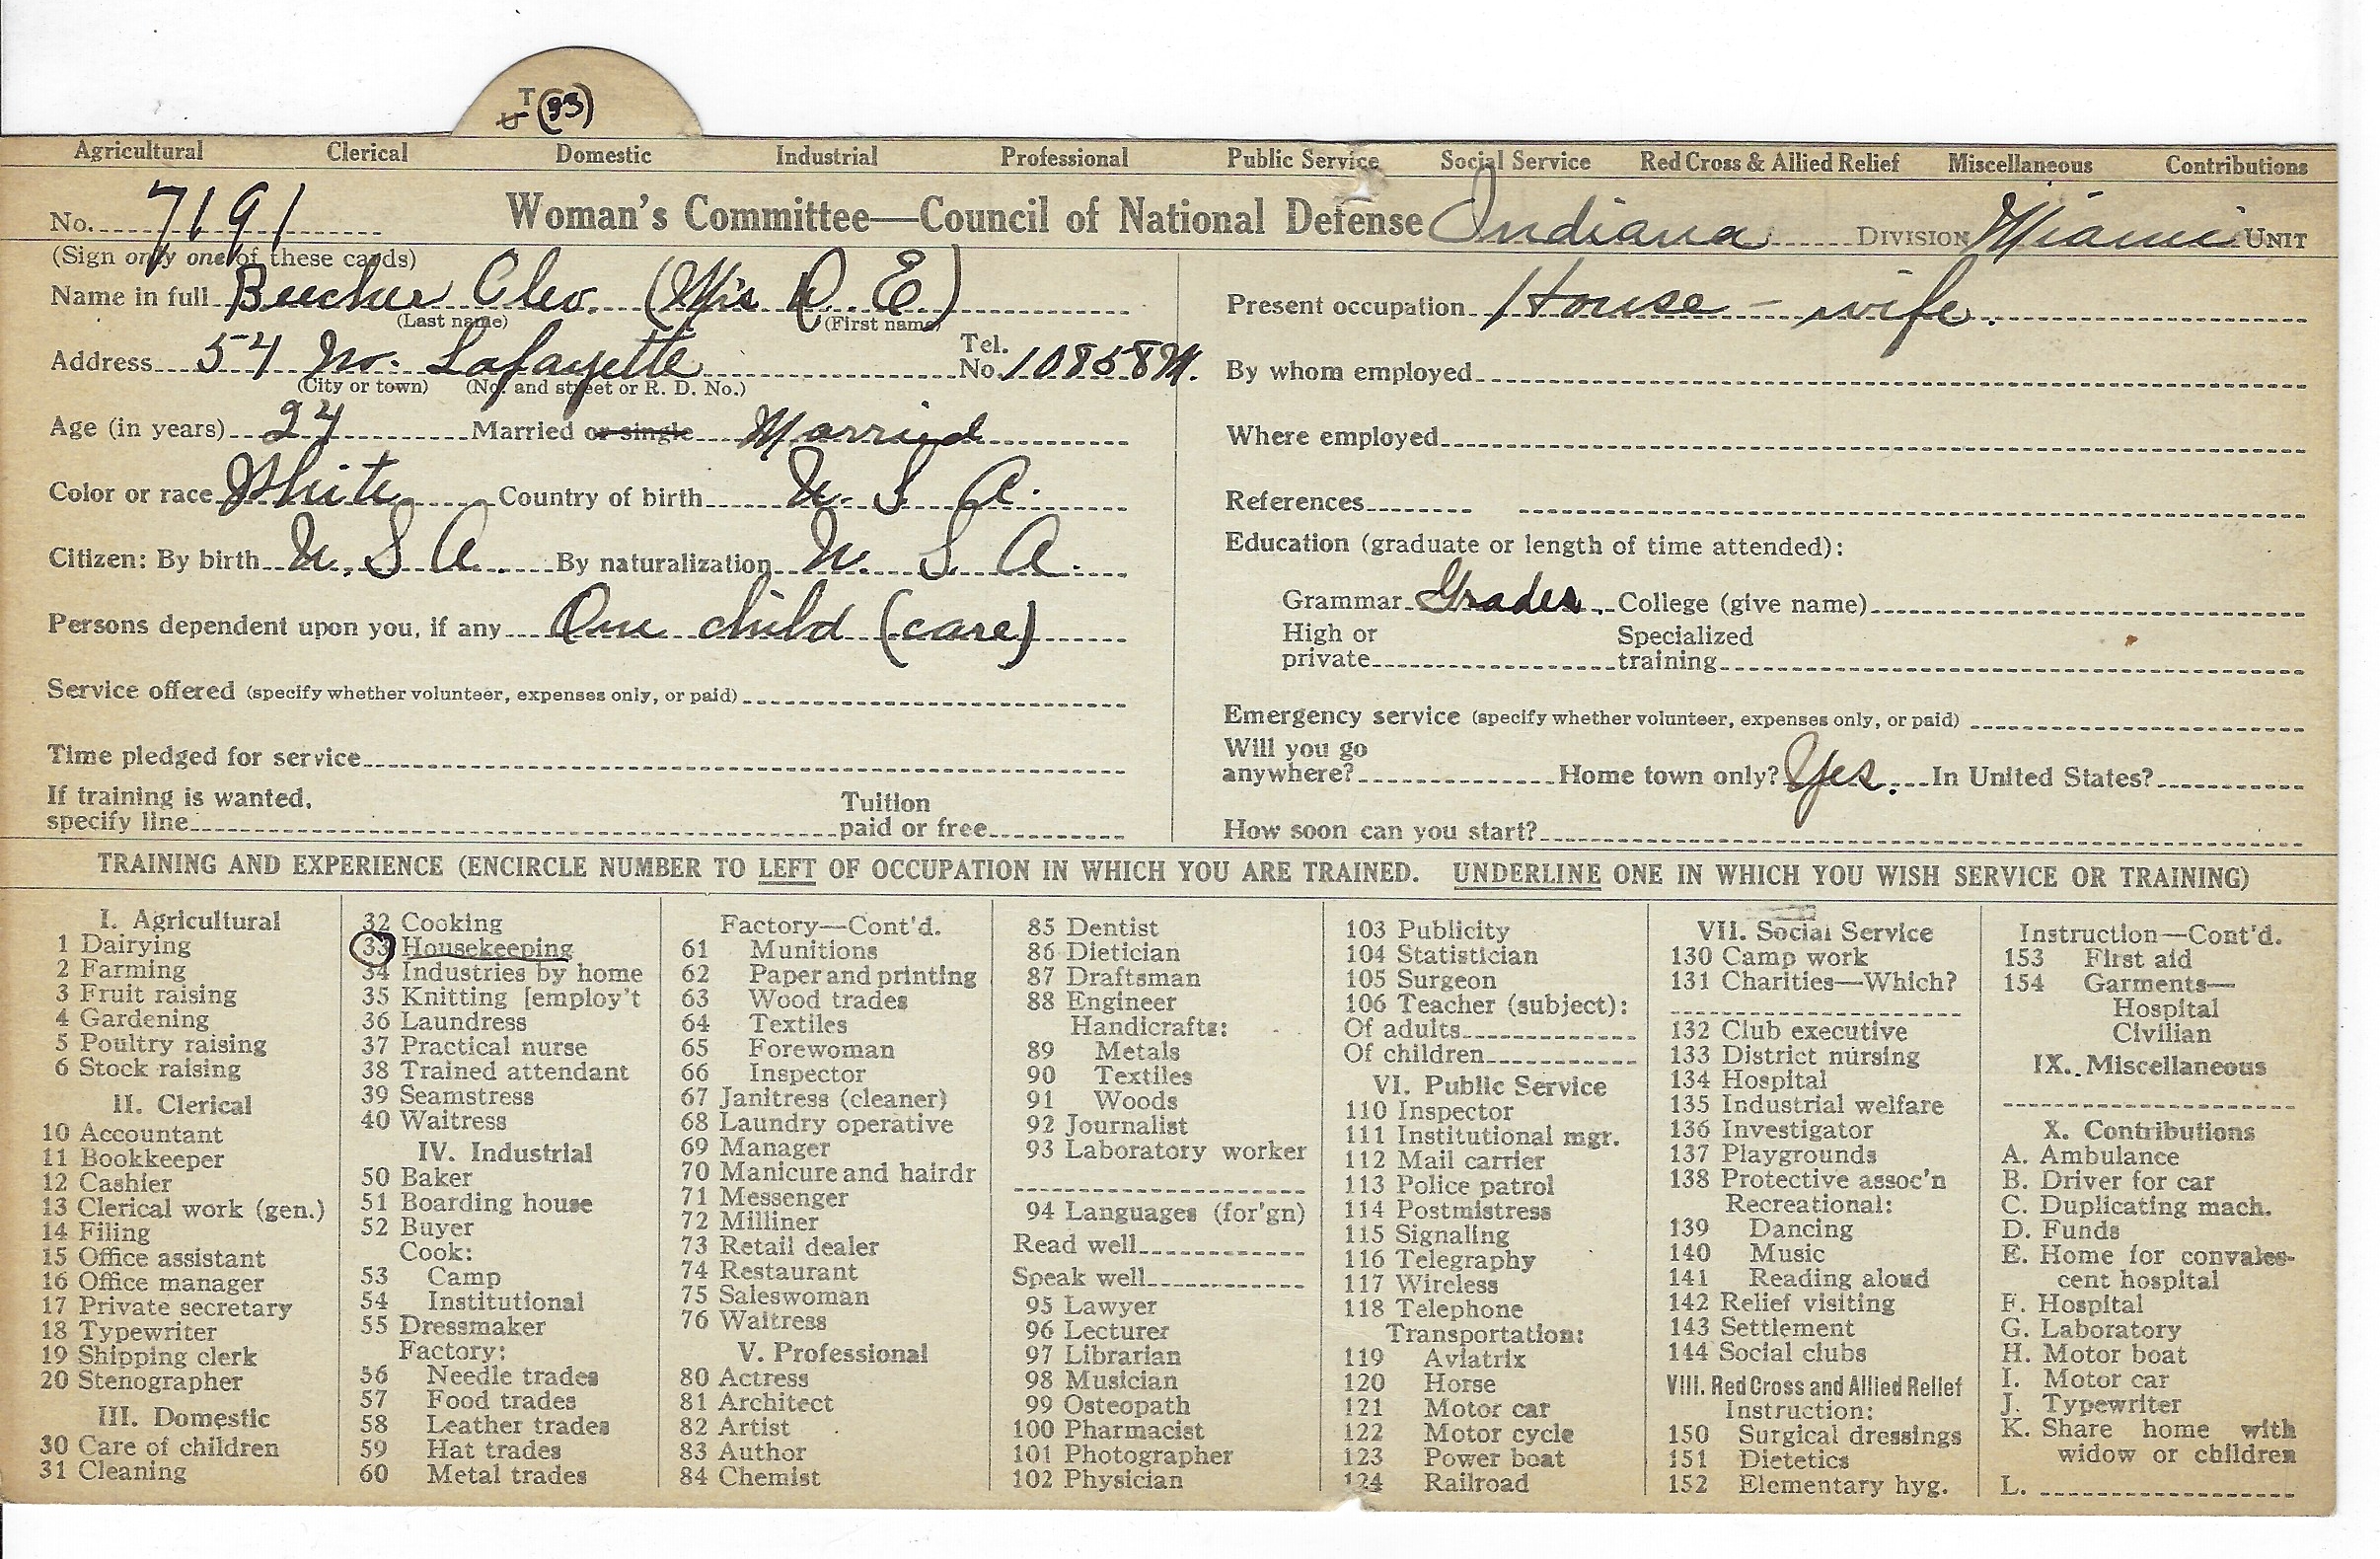 T (33)
U
Agricultural Clerical Domestic Industrial Professional Public Service Social Service Red Cross & Allied Relief Miscellaneous Contributions
No. 7191 Woman's Committee—Council of National Defense Indiana DIVISION Miami UNIT
(Sign only one of these cards)
Name in full Beecher Cleo. (Mrs R. E)
(Last name) (First name)
Address 54 No. Lafayette Tel. No. 10858M.
(City or town) (No. and street or R. D. No.)
Age (in years) 24 Married or single Married
Color or race White Country of birth U. S. A.
Citizen: By birth U. S A. By naturalization U. S. A.
Persons dependent upon you, if any One child (care)
Service offered (specify whether volunteer, expenses only, or paid)
Time pledged for service
If training is wanted, specify line Tuition paid or free
Present occupation House - wife.
By whom employed
Where employed
References
Education (graduate or length of time attended):
Grammar Grades. College (give name)
High or private Specialized training
Emergency service (specify whether volunteer, expenses only, or paid)
Will you go anywhere? Home town only? Yes. In United States?
How soon can you start?
TRAINING AND EXPERIENCE (ENCIRCLE NUMBER TO LEFT OF OCCUPATION IN WHICH YOU ARE TRAINED. UNDERLINE ONE IN WHICH YOU WISH SERVICE OR TRAINING)
I. Agricultural
1 Dairying
2 Farming
3 Fruit raising
4 Gardening
5 Poultry raising
6 Stock raising
II. Clerical
10 Accountant
11 Bookkeeper
12 Cashier
13 Clerical work (gen.)
14 Filing
15 Office assistant
16 Office manager
17 Private secretary
18 Typewriter
19 Shipping clerk
20 Stenographer
III. Domestic
30 Care of children
31 Cleaning
32 Cooking
33 Housekeeping
34 Industries by home
35 Knitting [employ't
36 Laundress
37 Practical nurse
38 Trained attendant
39 Seamstress
40 Waitress
IV. Industrial
50 Baker
51 Boarding house
52 Buyer
Cook:
53 Camp
54 Institutional
55 Dressmaker
Factory:
56 Needle trades
57 Food trades
58 Leather trades
59 Hat trades
60 Metal trades
Factory—Cont'd.
61 Munitions
62 Paper and printing
63 Wood trades
64 Textiles
65 Forewoman
66 Inspector
67 Janitress (cleaner)
68 Laundry operative
69 Manager
70 Manicure and hairdr
71 Messenger
72 Milliner
73 Retail dealer
74 Restaurant
75 Saleswoman
76 Waitress
V. Professional
80 Actress
81 Architect
82 Artist
83 Author
84 Chemist
85 Dentist
86 Dietician
87 Draftsman
88 Engineer
Handicrafts:
89 Metals
90 Textiles
91 Woods
92 Journalist
93 Laboratory worker
94 Languages (for'gn)
Read well
Speak well
95 Lawyer
96 Lecturer
97 Librarian
98 Musician
99 Osteopath
100 Pharmacist
101 Photographer
102 Physician
103 Publicity
104 Statistician
105 Surgeon
106 Teacher (subject):
Of adults
Of children
VI. Public Service
110 Inspector
111 Institutional mgr.
112 Mail carrier
113 Police patrol
114 Postmistress
115 Signaling
116 Telegraphy
117 Wireless
118 Telephone
Transportation:
119 Aviatrix
120 Horse
121 Motor car
122 Motor cycle
123 Power boat
124 Railroad
VII. Social Service
130 Camp work
131 Charities—Which?
132 Club executive
133 District nursing
134 Hospital
135 Industrial welfare
136 Investigator
137 Playgrounds
138 Protective assoc'n
Recreational:
139 Dancing
140 Music
141 Reading aloud
142 Relief visiting
143 Settlement
144 Social clubs
VIII. Red Cross and Allied Relief
Instruction:
150 Surgical dressings
151 Dietetics
152 Elementary hyg.
Instruction—Cont'd.
153 First aid
154 Garments—
Hospital
Civilian
IX. Miscellaneous
X. Contributions
A. Ambulance
B. Driver for car
C. Duplicating mach.
D. Funds
E. Home for convales-
cent hospital
F. Hospital
G. Laboratory
H. Motor boat
I. Motor car
J. Typewriter
K. Share home with
widow or children
L.